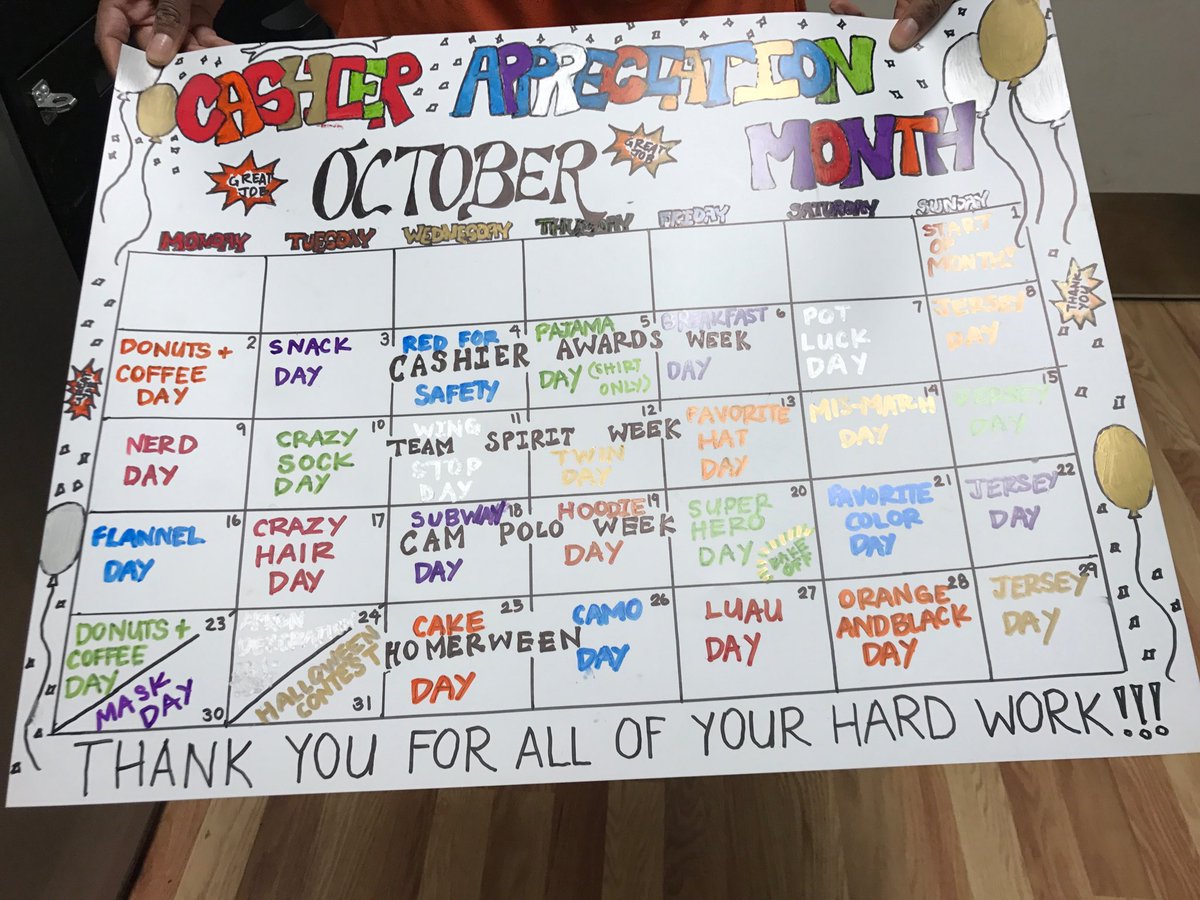 CASHIER APPRECIATION
MONTH
OCTOBER
GREAT JOB
GREAT JOB
THANK YOU
MONDAY TUESDAY WEDNESDAY THURSDAY FRIDAY SATURDAY SUNDAY
1
START OF MONTH!
AWARDS WEEK
CASHIER
2
DONUTS + COFFEE DAY
3
SNACK DAY
4
RED FOR
SAFETY
5
PAJAMA
DAY (SHIRT ONLY)
6
BREAKFAST
DAY
7
POT LUCK DAY
8
JERSEY DAY
TEAM SPIRIT WEEK
9
NERD DAY
10
CRAZY SOCK DAY
11
WING
STOP DAY
12
TWIN DAY
13
FAVORITE HAT DAY
14
MIS-MARH DAY
15
JERSEY DAY
CAM POLO WEEK
16
FLANNEL DAY
17
CRAZY HAIR DAY
18
SUBWAY
DAY
19
HOODIE
DAY
20
SUPER HERO DAY
BAKE OFF
21
FAVORITE COLOR DAY
22
JERSEY DAY
HOMERWEEN
23
DONUTS + COFFEE DAY
30
MASK DAY
24
DECORATION
31
HALLOWEEN CONTEST
25
CAKE
DAY
26
CAMO
DAY
27
LUAU DAY
28
ORANGE AND BLACK DAY
29
JERSEY DAY
THANK YOU FOR ALL OF YOUR HARD WORK!!!